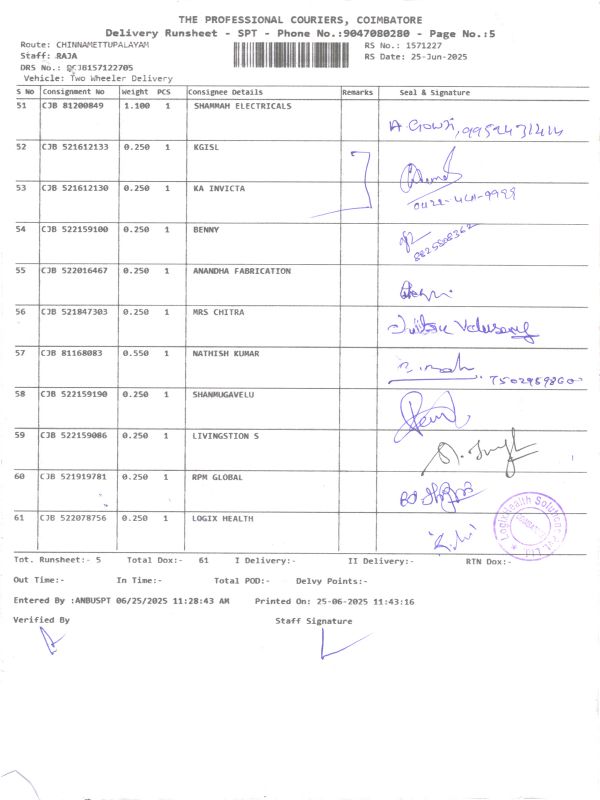 THE PROFESSIONAL COURIERS, COIMBATORE
Delivery Runsheet - SPT - Phone No.:9047080280 - Page No.:5
Route: CHINNAMETTUPALAYAM RS No.: 1571227
Staff: RAJA RS Date: 25-Jun-2025
DRS No.: DCJB157122705
Vehicle: Two Wheeler Delivery
S No Consignment No Weight PCS Consignee Details Remarks Seal & Signature
51 CJB 81200849 1.100 1 SHAMMAH ELECTRICALS
52 CJB 521612133 0.250 1 KGISL
53 CJB 521612130 0.250 1 KA INVICTA
0422-4419999
54 CJB 522159100 0.250 1 BENNY
8825808362
55 CJB 522016467 0.250 1 ANANDHA FABRICATION
56 CJB 521847303 0.250 1 MRS CHITRA
57 CJB 81168083 0.550 1 NATHISH KUMAR
7502959860
58 CJB 522159190 0.250 1 SHANMUGAVELU
59 CJB 522159086 0.250 1 LIVINGSTION S
60 CJB 521919781 0.250 1 RPM GLOBAL
61 CJB 522078756 0.250 1 LOGIX HEALTH
LogixHealth Solutions Pvt. Ltd
Tot. Runsheet:- 5 Total Dox:- 61 I Delivery:- II Delivery:- RTN Dox:-
Out Time:- In Time:- Total POD:- Delvy Points:-
Entered By :ANBUSPT 06/25/2025 11:28:43 AM Printed On: 25-06-2025 11:43:16
Verified By Staff Signature